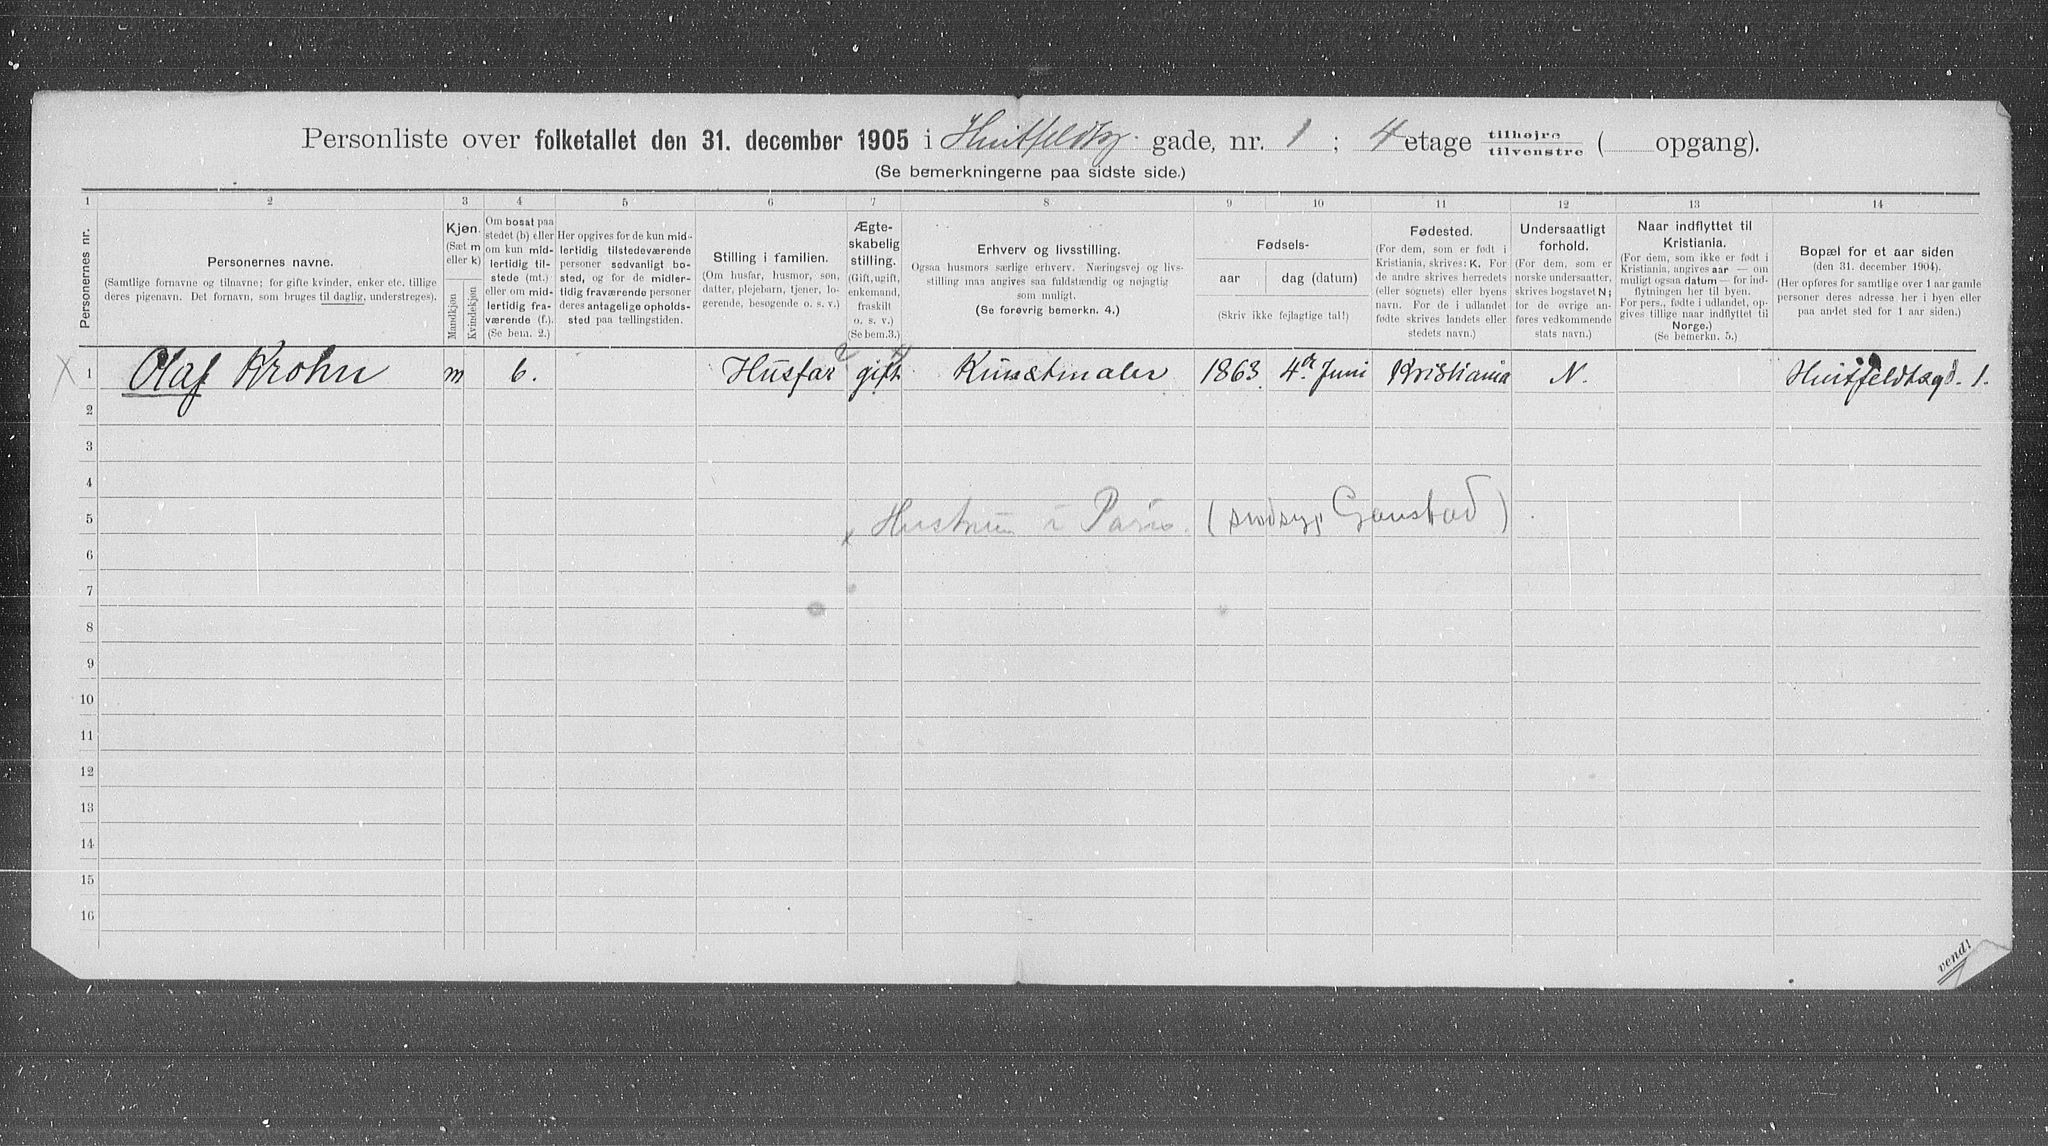 Personliste over folketallet den 31. december 1905 i Huitfeldtsg. gade, nr. 1 ; 4 etage tilhøjre / tilvenstre ( opgang).
(Se bemerkningerne paa sidste side.)
1 2 3 4 5 6 7 8 9 10 11 12 13 14
Personernes nr.
Personernes navne.
(Samtlige fornavne og tilnavne; for gifte kvinder, enker etc. tillige
deres pigenavn. Det fornavn, som bruges til daglig, understreges).
Kjøn.
(Sæt m
eller k)
Mandkjøn
Kvindekjøn
Om bosat paa
stedet (b) eller
om kun mid-
lertidig til-
stede (mt.)
eller om mid-
lertidig fra-
værende (f.).
(Se bem. 2.)
Her opgives for de kun mid-
lertidig tilstedeværende
personer sedvanligt bo-
sted, og for de midler-
tidig fraværende personer
deres antagelige opholds-
sted paa tællingstiden.
Stilling i familien.
(Om husfar, husmor, søn,
datter, plejebarn, tjener, lo-
gerende, besøgende o. s. v.)
Ægte-
skabelig
stilling.
(Gift, ugift,
enkemand,
fraskilt
o. s. v.)
(Se bem.3.)
Erhverv og livsstilling.
Ogsaa husmors særlige erhverv. Næringsvej og livs-
stilling maa angives saa fuldstændig og nøjagtig
som muligt.
(Se forøvrig bemerkn. 4.)
Fødsels-
aar
dag (datum)
(Skriv ikke fejlagtige tal!)
Fødested.
(For dem, som er født i
Kristiania, skrives: K. For
de andre skrives herredets
(eller sognets) eller byens
navn. For de i udlandet
fødte skrives landets eller
stedets navn.)
Undersaatligt
forhold.
(For dem, som er
norske undersaatter,
skrives bogstavet N;
for de øvrige an-
føres vedkommende
stats navn.)
Naar indflyttet til
Kristiania.
(For dem, som ikke er født i
Kristiania, angives aar — om
muligt ogsaa datum — for ind-
flytningen her til byen.
For pers., fødte i udlandet, op-
gives tillige naar indflyttet til
Norge.)
(Se bemerkn. 5.)
Bopæl for et aar siden
(den 31. december 1904).
(Her opføres for samtlige over 1 aar gamle
personer deres adresse her i byen eller
paa andet sted for 1 aar siden.)
x 1 Olaf Krohn m b. Husfar gift Kunstmaler 1863 4de Juni Kristiania N. Huitfeldtsgd. 1.
2
3
4
5 x Hustruen i Paris. (sindssyg Gaustad).
6
7
8
9
10
11
12
13
14
15
16
vend!